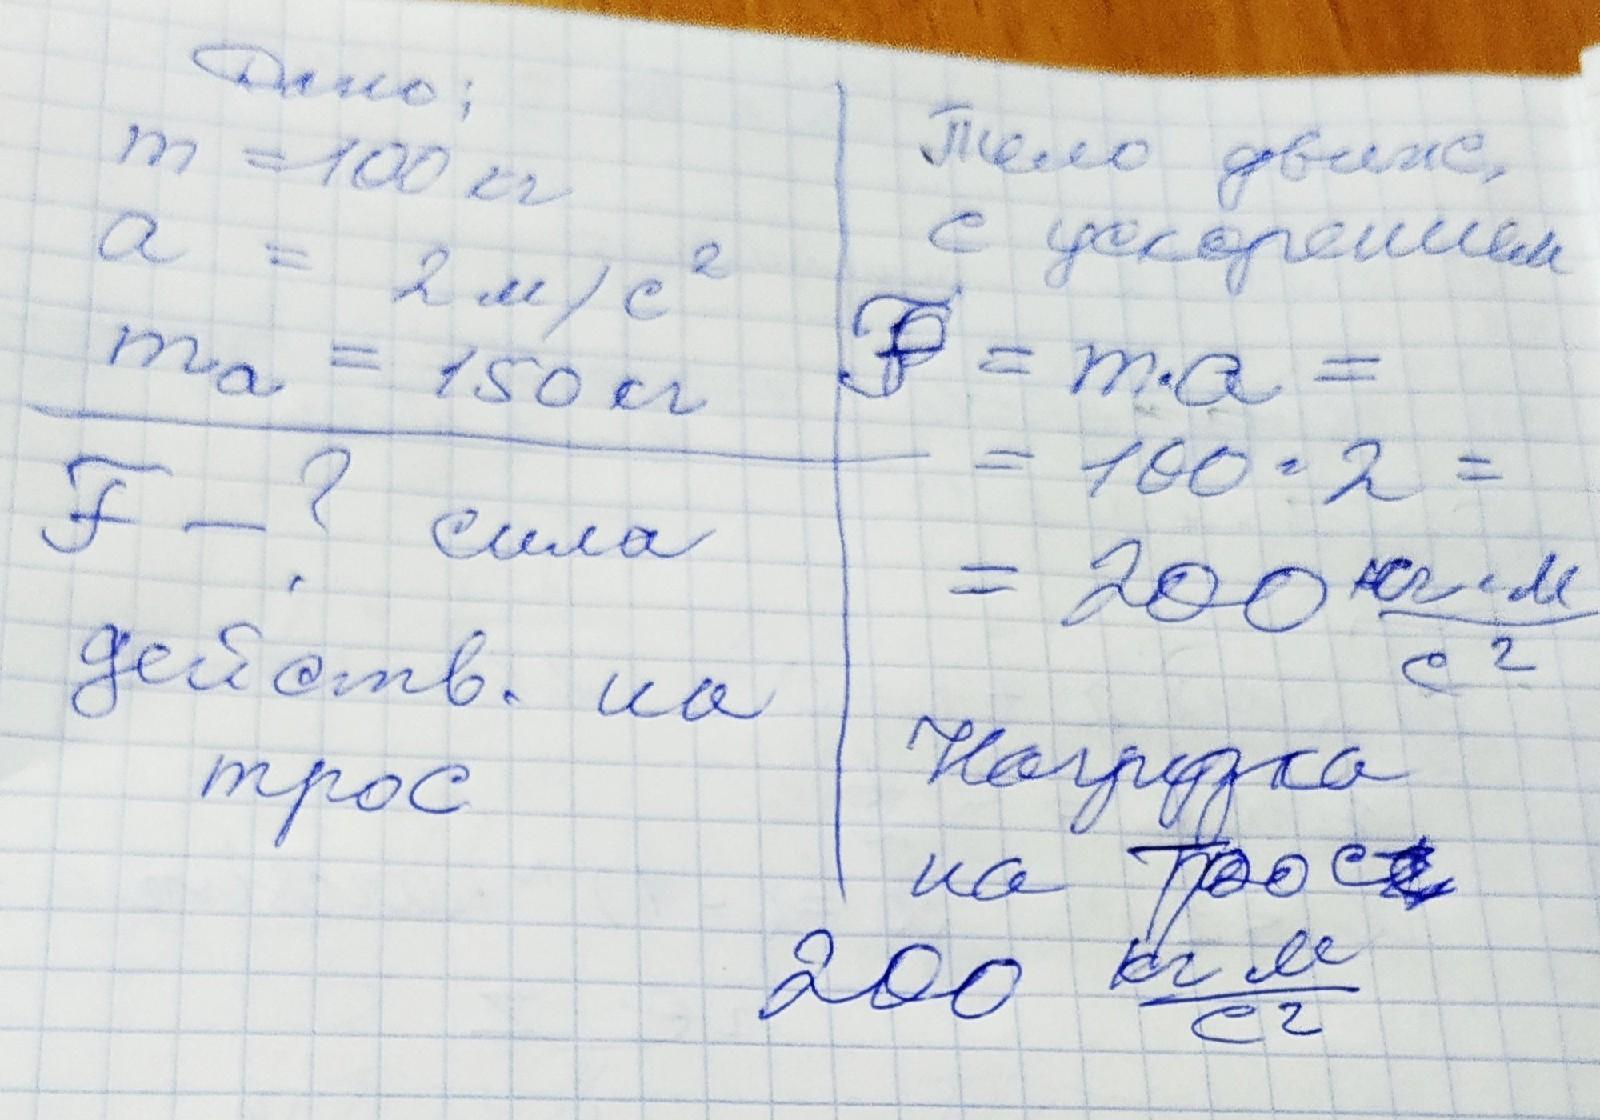 Дано;
m = 100 кг
a = 2 м/с²
mₐ = 150 кг
F — ? сила
действ. на
трос
Тело движ.
с ускорением
F = m·a =
= 100·2 =
= 200 кг·м/с²
Нагрузка
на трос
200 кг м/с²